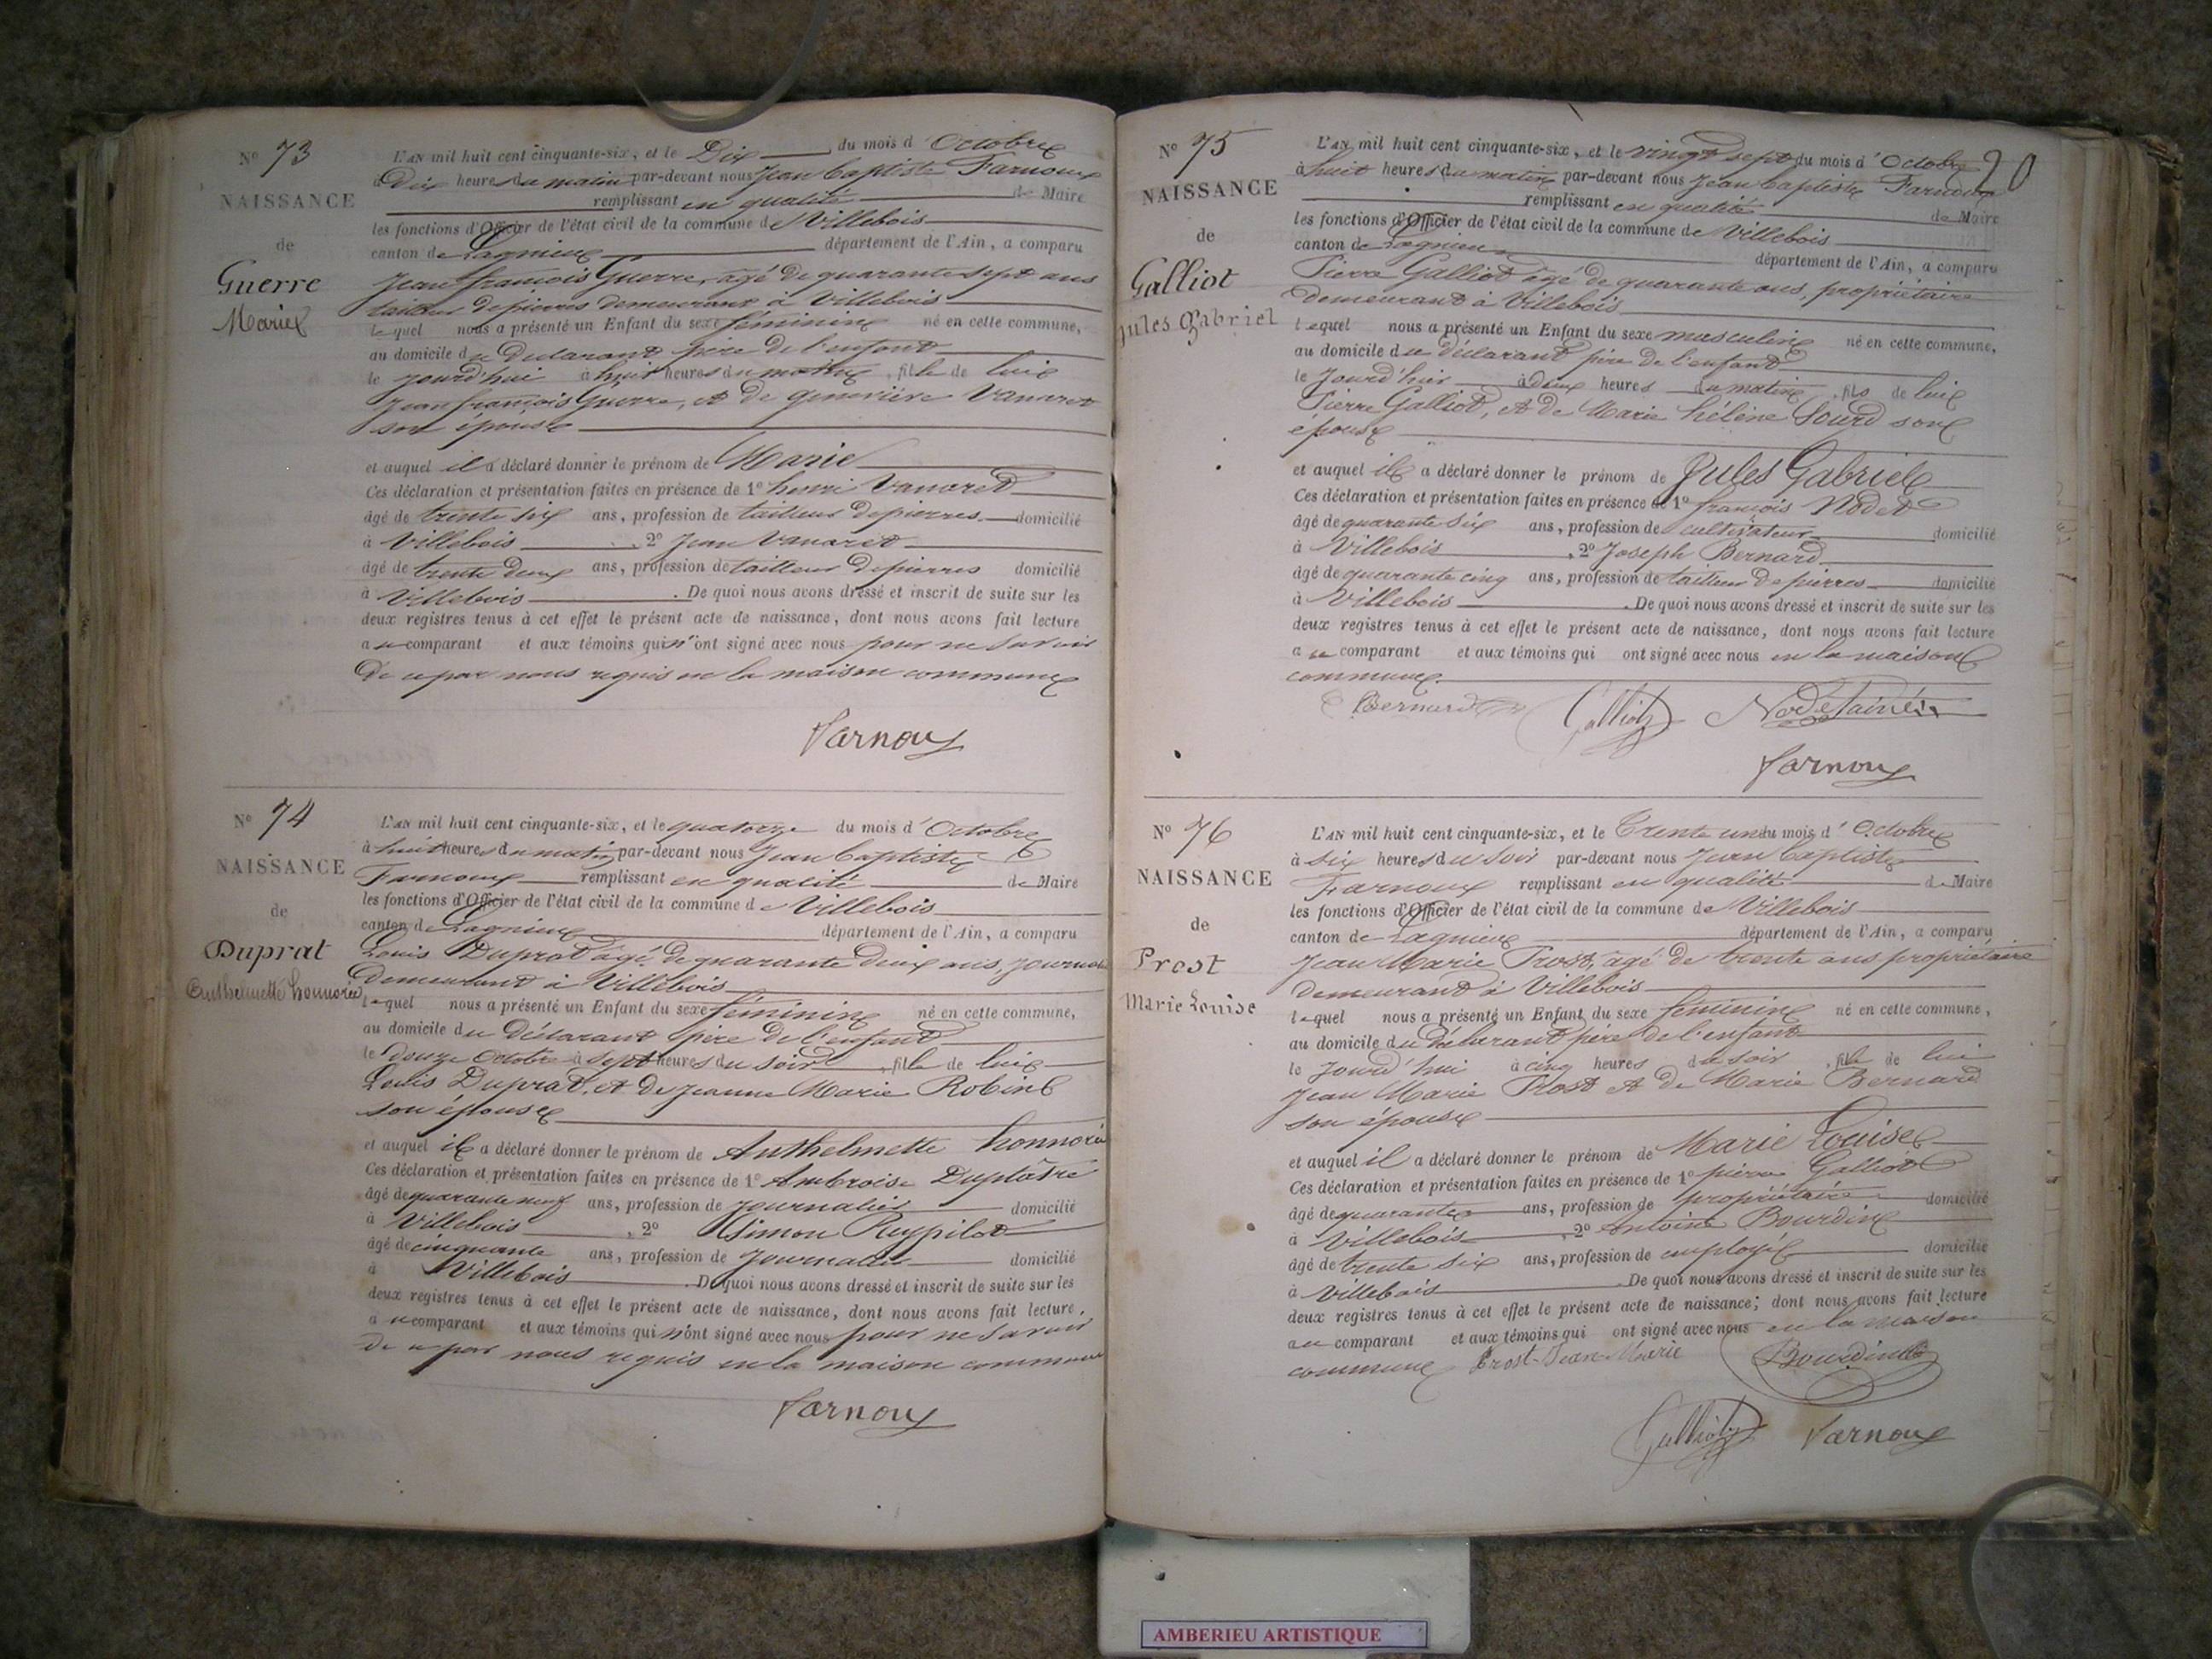 N° 73
NAISSANCE
de
Guerre
Marie
L'AN mil huit cent cinquante-six, et le Dix du mois d'Octobre
à Dix heures du matin par-devant nous Jean Baptiste Farnoux
remplissant en qualité de Maire
les fonctions d'Officier de l'état civil de la commune de Villebois
canton de Lagnieu département de l'Ain, a comparu
Jean françois Guerre, agé de quarante sept ans
tailleur de pierres demeurant à Villebois
lequel nous a présenté un Enfant du sexe féminin né en cette commune,
au domicile du Declarant père de l'enfant
le jourd'hui à huit heures du matin, fille de lui
Jean françois Guerre, et de Geneviève Vanaret
son épouse
et auquel il a déclaré donner le prénom de Marie
Ces déclaration et présentation faites en présence de 1° henri Vanaret
âgé de trente six ans, profession de tailleur de pierres domicilié
à Villebois, 2° Jean Vanaret
âgé de trente deux ans, profession de tailleur de pierres domicilié
à Villebois. De quoi nous avons dressé et inscrit de suite sur les
deux registres tenus à cet effet le présent acte de naissance, dont nous avons fait lecture
au comparant et aux témoins qui n'ont signé avec nous pour ne savoir
De ce par nous requis en la maison commune
Farnoux
N° 74
NAISSANCE
de
Duprat
Anthelmette honnorée
L'AN mil huit cent cinquante-six, et le quatorze du mois d'Octobre
à huit heures du matin par-devant nous Jean Baptiste
Farnoux remplissant en qualité de Maire
les fonctions d'Officier de l'état civil de la commune de Villebois
canton de Lagnieu département de l'Ain, a comparu
Louis Duprat agé de quarante deux ans,
demeurant à Villebois
lequel nous a présenté un Enfant du sexe féminin né en cette commune,
au domicile du Déclarant père de l'enfant
le douze Octobre à sept heures du soir, fille de lui
Louis Duprat, et de Jeanne Marie Robin
son épouse
et auquel il a déclaré donner le prénom de Anthelmette honnorée
Ces déclaration et présentation faites en présence de 1° Ambroise Duplâtre
âgé de quarante neuf ans, profession de Journalier domicilié
à Villebois, 2° Simon Reypilat
âgé de cinquante ans, profession de Journalier domicilié
à Villebois. De quoi nous avons dressé et inscrit de suite sur les
deux registres tenus à cet effet le présent acte de naissance, dont nous avons fait lecture,
au comparant et aux témoins qui n'ont signé avec nous pour ne savoir
de ce par nous requis en la maison commune
Farnoux
20
N° 75
NAISSANCE
de
Galliot
Jules Gabriel
L'AN mil huit cent cinquante-six, et le vingt sept du mois d'Octobre
à huit heures du matin par-devant nous Jean Baptiste Farnoux
remplissant en qualité de Maire
les fonctions d'Officier de l'état civil de la commune de Villebois
canton de Lagnieu département de l'Ain, a comparu
Pierre Galliot âgé de quarante ans, propriétaire
demeurant à Villebois
lequel nous a présenté un Enfant du sexe masculin né en cette commune,
au domicile du déclarant père de l'enfant
le Jourd'hui à deux heures du matin, fils de lui
Pierre Galliot, et de Marie hélène Sourd son
épouse
et auquel il a déclaré donner le prénom de Jules Gabriel
Ces déclaration et présentation faites en présence de 1° françois Nodet
âgé de quarante six ans, profession de cultivateur domicilié
à Villebois, 2° Joseph Bernard
âgé de quarante cinq ans, profession de tailleur de pierres domicilié
à Villebois. De quoi nous avons dressé et inscrit de suite sur les
deux registres tenus à cet effet le présent acte de naissance, dont nous avons fait lecture
au comparant et aux témoins qui ont signé avec nous en la maison
commune.
Bernard Galliot Nodet ainé
Farnoux
N° 76
NAISSANCE
de
Prost
Marie Louise
L'AN mil huit cent cinquante-six, et le Trente un du mois d'Octobre
à six heures du soir par-devant nous Jean Baptiste
Farnoux remplissant en qualité de Maire
les fonctions d'Officier de l'état civil de la commune de Villebois
canton de Lagnieu département de l'Ain, a comparu
Jean Marie Prost, agé de trente ans propriétaire
Demeurant à Villebois
lequel nous a présenté un Enfant du sexe féminin né en cette commune,
au domicile du Déclarant père de l'enfant
le Jourd'hui à cinq heures du soir, fille de lui
Jean Marie Prost et de Marie Bernard
son épouse
et auquel il a déclaré donner le prénom de Marie Louise
Ces déclaration et présentation faites en présence de 1° pierre Galliot
âgé de quarante ans, profession de propriétaire domicilié
à Villebois, 2° Antoine Bourdin
âgé de trente six ans, profession de employé domicilié
à Villebois. De quoi nous avons dressé et inscrit de suite sur les
deux registres tenus à cet effet le présent acte de naissance; dont nous avons fait lecture
au comparant et aux témoins qui ont signé avec nous en la maison
commune Prost Jean-Marie Bourdin
Galliot Farnoux
AMBERIEU ARTISTIQUE